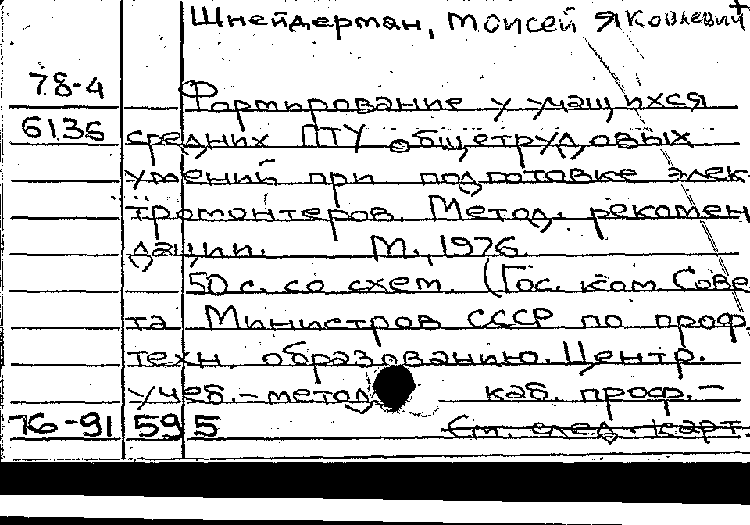 Шнейдерман, Моисей Яковлевич
78-4
Формирование у учащихся
6135 средних ПТУ общетрудовых
умений при подготовке элек-
тромонтеров. Метод. рекомен
дации. М., 1976.
50 с. со схем. (Гос. ком. Сове
та Министров СССР по проф.
техн. образованию. Центр.
учеб.-метод. каб. проф.-
76-91 595 См. след. карт.